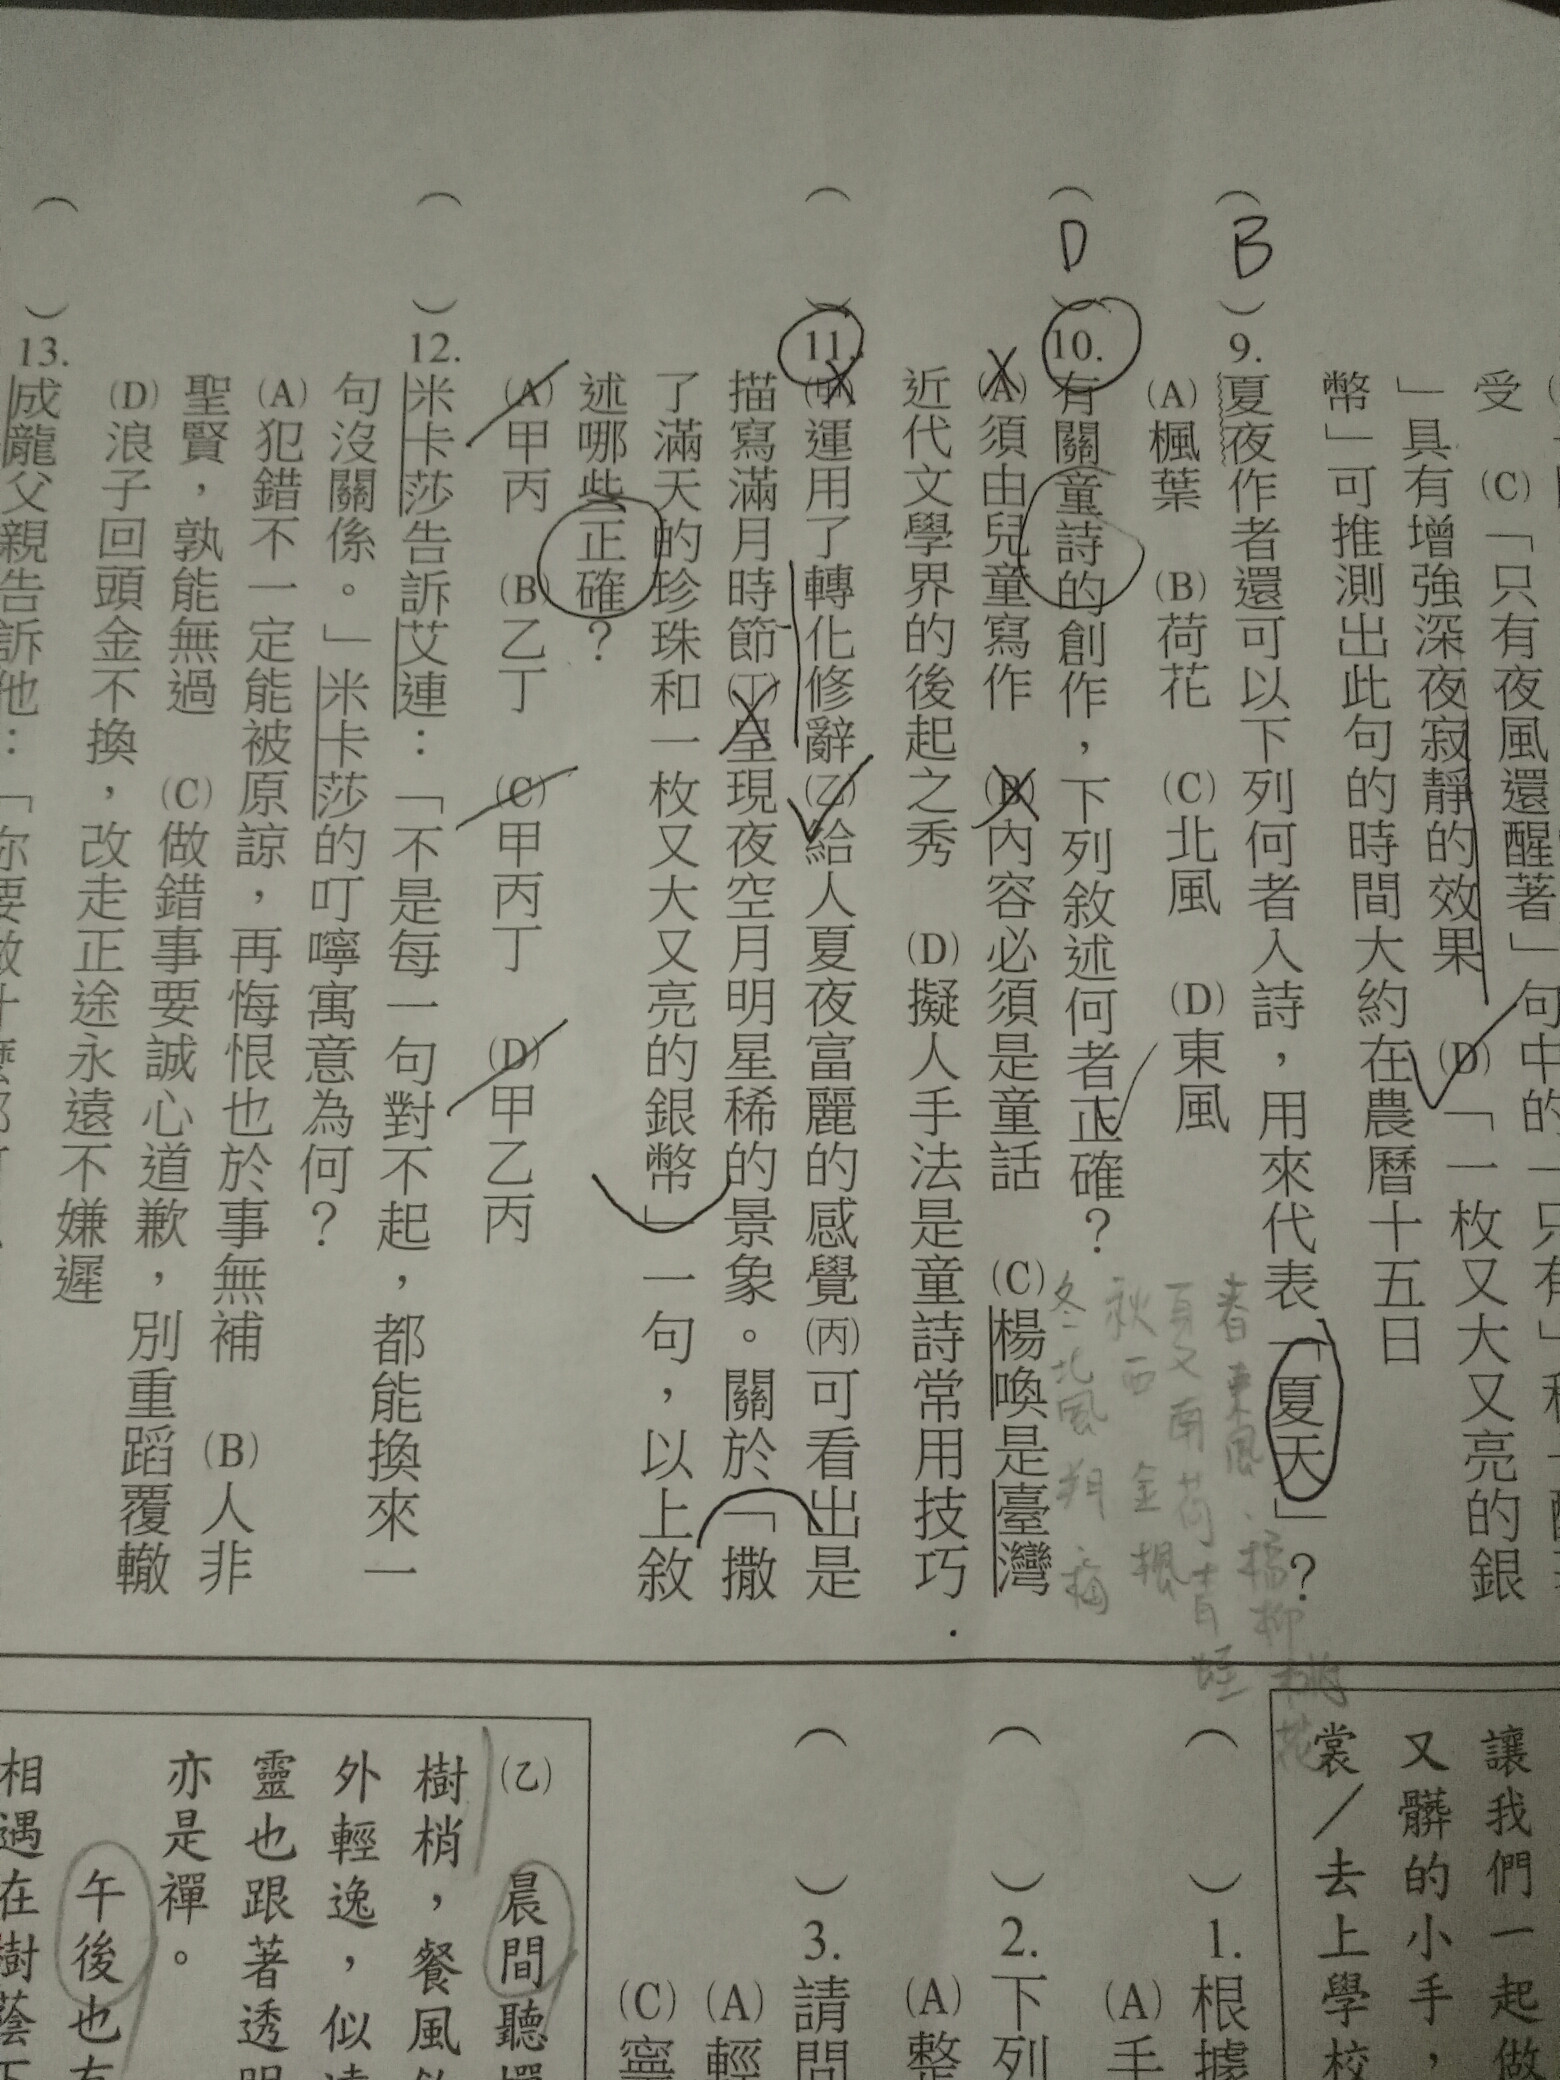 受 (C)「只有夜風還醒著」句中的「只有」
」具有增強深夜寂靜的效果 (D)「一枚又大又亮的銀
幣」可推測出此句的時間大約在農曆十五日
(B)9.夏夜作者還可以下列何者入詩,用來代表「夏天」?
(A)楓葉 (B)荷花 (C)北風 (D)東風
春東風.楊柳桃花
夏又南荷青蛙
秋西金楓
冬北風朔梅
(D)10.有關童詩的創作,下列敘述何者正確?
(A)須由兒童寫作 (B)內容必須是童話 (C)楊喚是臺灣
近代文學界的後起之秀 (D)擬人手法是童詩常用技巧.
( )11.(甲)運用了轉化修辭(乙)給人夏夜富麗的感覺(丙)可看出是
描寫滿月時節(丁)呈現夜空月明星稀的景象。關於「撒
了滿天的珍珠和一枚又大又亮的銀幣」一句,以上敘
述哪些正確?
(A)甲丙 (B)乙丁 (C)甲丙丁 (D)甲乙丙
( )12.米卡莎告訴艾連:「不是每一句對不起,都能換來一
句沒關係。」米卡莎的叮嚀寓意為何?
(A)犯錯不一定能被原諒,再悔恨也於事無補 (B)人非
聖賢,孰能無過 (C)做錯事要誠心道歉,別重蹈覆轍
(D)浪子回頭金不換,改走正途永遠不嫌遲
( )13.成龍父親告訴他:「你要做什麼都可
讓我們一起做
又髒的小手,
裳/去上學校
( )1.根據
(A)手
( )2.下列
(A)整
( )3.請問
(A)輕
(C)寧
(乙) 晨間聽蟬
樹梢,餐風飲
外輕逸,似遠
靈也跟著透明
亦是禪。
午後也有
相遇在樹蔭下